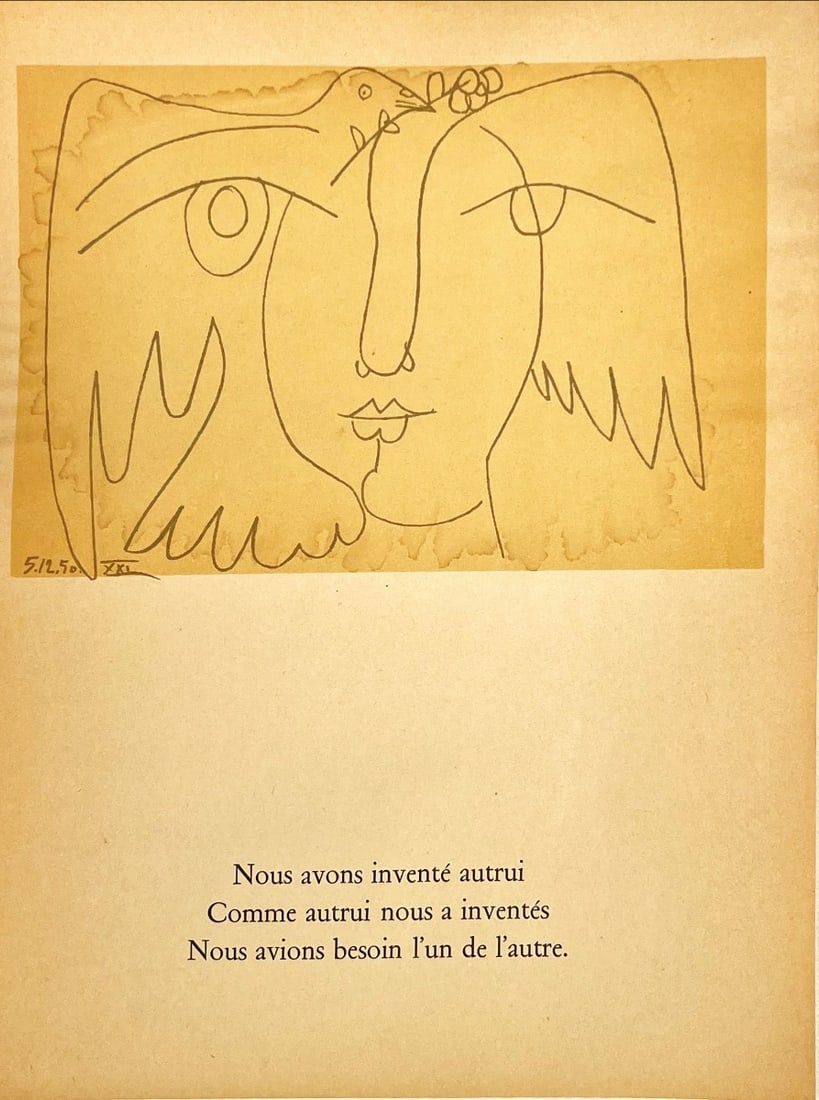 5.12.50. XXI
Nous avons inventé autrui
Comme autrui nous a inventés
Nous avions besoin l’un de l’autre.